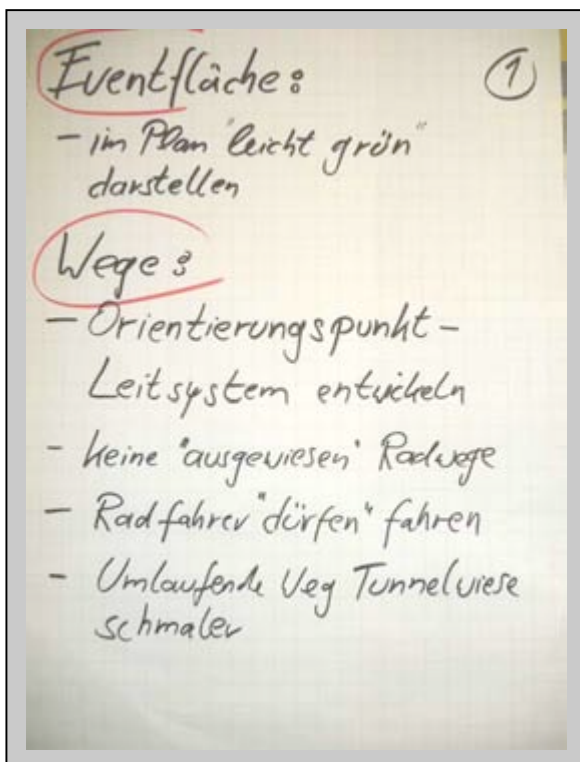 Eventfläche:
1
- im Plan "leicht grün"
darstellen
Wege:
- Orientierungspunkt-
Leitsystem entwickeln
- keine "ausgewiesen" Radwege
- Radfahrer "dürfen" fahren
- Umlaufende Weg Tunnelwiese
schmaler